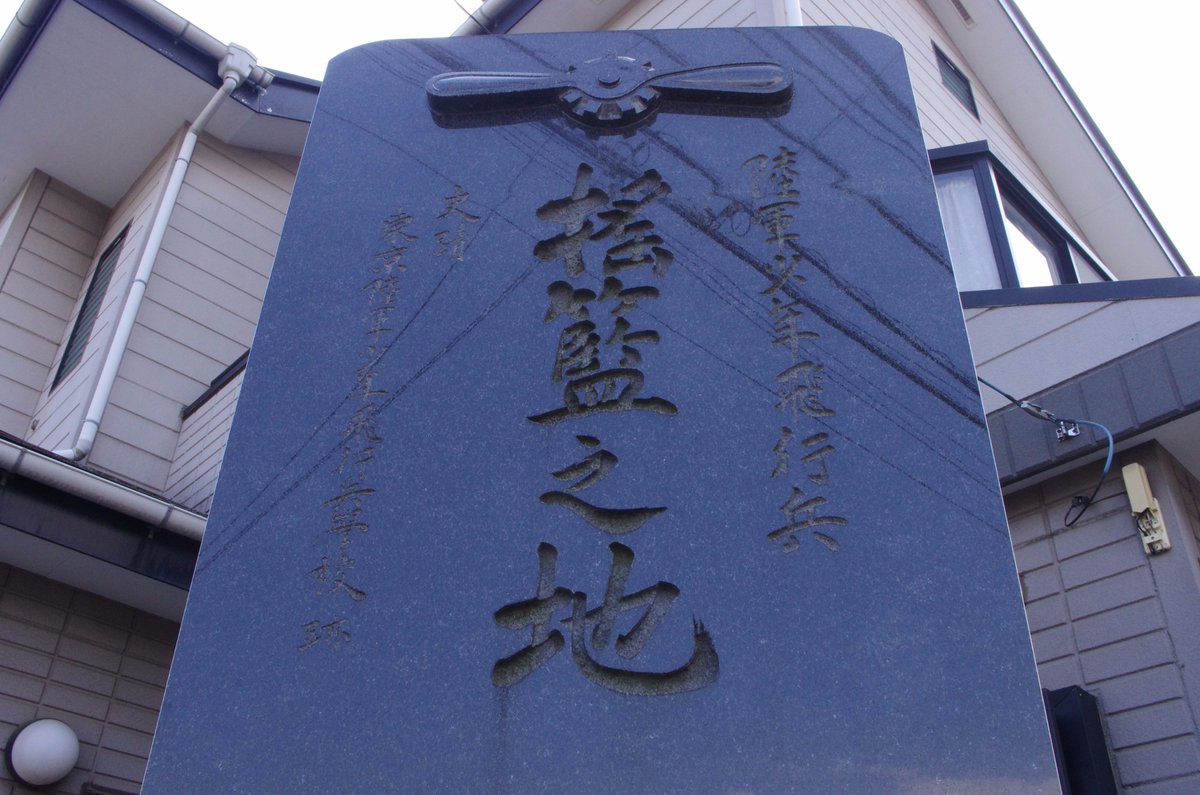 陸軍少年飛行兵
揺籃之地
史蹟
東京陸軍少年飛行兵学校跡